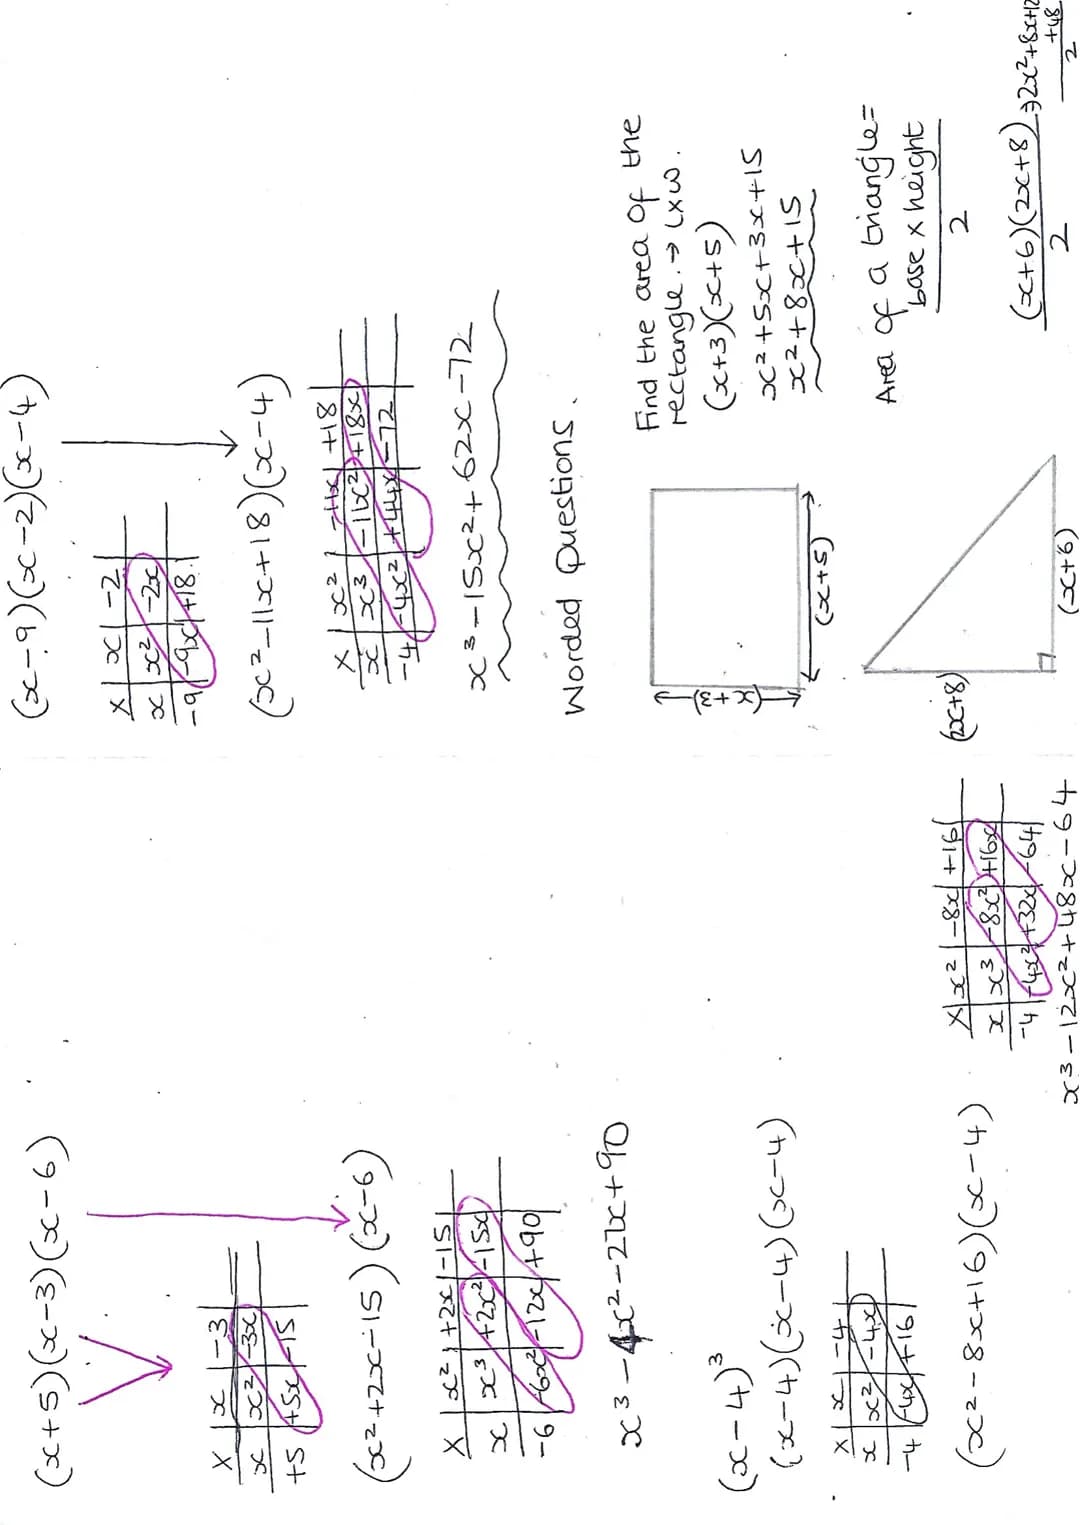 (x+5)(x-3)(x-6)
× x -3
x x² -3x
+5 +5x -15
(x²+2x-15)(x-6)
× x² +2x -15
x x³ +2x² -15x
-6 -6x² -12x +90
x³-4x²-27x+90
(x-4)³
(x-4)(x-4)(x-4)
× x -4
x x² -4x
-4 -4x +16
(x²-8x+16)(x-4)
× x² -8x +16
x x³ -8x² +16x
-4 -4x² +32x -64
x³-12x²+48x-64
(x-9)(x-2)(x-4)
× x -2
x x² -2x
-9 -9x +18
(x²-11x+18)(x-4)
× x² -11x +18
x x³ -11x² +18x
-4 -4x² +44x -72
x³-15x²+62x-72
Worded Questions.
(x+3)
(x+5)
Find the area of the
rectangle. → L×W.
(x+3)(x+5)
x²+5x+3x+15
x²+8x+15
(2x+8)
(x+6)
Area of a triangle=
base × height
2
(x+6)(2x+8) → 2x²+8x+12
+48
2
2